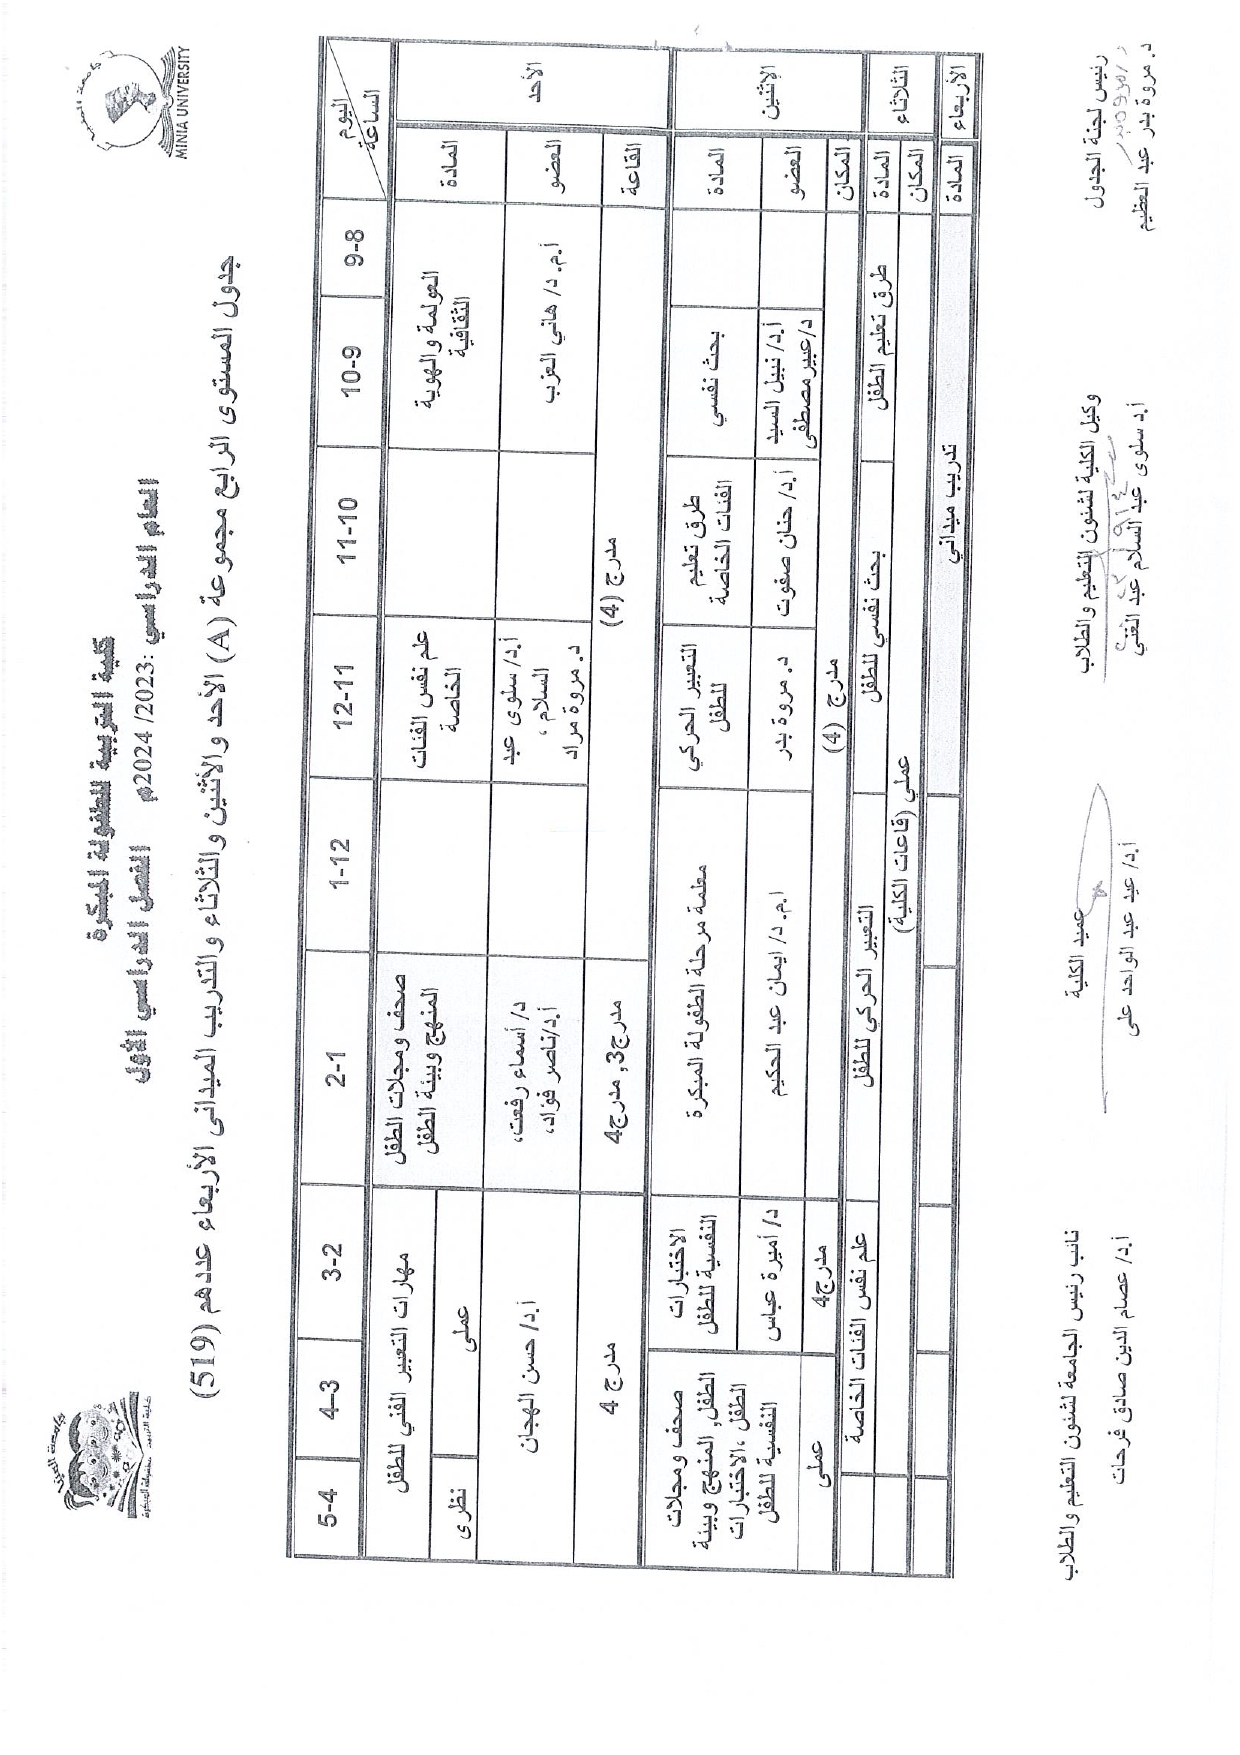 جامعة المنيا
MINIA UNIVERSITY
كلية التربية للطفولة المبكرة
العام الدراسي :2023/ 2024م الفصل الدراسي الأول
جدول المستوى الرابع مجموعة (A) الأحد والأثنين والثلاثاء والتدريب الميدانى الأربعاء عددهم (519)
اليوم
الساعة
9-8
10-9
11-10
12-11
1-12
2-1
3-2
4-3
5-4
الأحد
المادة
العولمة والهوية
الثقافية
علم نفس الفئات
الخاصة
صحف ومجلات الطفل
المنهج وبيئة الطفل
مهارات التعبير الفني للطفل
عملى
نظرى
العضو
أ.م.د/ هاني العزب
أ.د/ سلوى عبد
السلام ،
د. مروة مراد
د/ أسماء رفعت،
أ.د/ناصر فؤاد،
أ.د/ حسن الهجان
القاعة
مدرج (4)
مدرج3, مدرج4
مدرج 4
الإثنين
المادة
بحث نفسي
طرق تعليم
الفئات الخاصة
التعبير الحركي
للطفل
معلمة مرحلة الطفولة المبكرة
الاختبارات
النفسية للطفل
صحف ومجلات
الطفل, المنهج وبيئة
الطفل ،الاختبارات
النفسية للطفل
العضو
أ.د/ نبيل السيد
د/عبير مصطفى
أ.د/ حنان صفوت
د. مروة بدر
ا.م.د/ ايمان عبد الحكيم
د/ أميرة عباس
عملى
المكان
مدرج (4)
مدرج4
الثلاثاء
المادة
طرق تعليم الطفل
بحث نفسي للطفل
التعبير الحركي للطفل
علم نفس الفئات الخاصة
المكان
عملي (قاعات الكلية)
الأربعاء
المادة
تدريب ميداني
رئيس لجنة الجدول
د. مروة بدر عبد العظيم
وكيل الكلية لشئون التعليم والطلاب
أ.د سلوى عبد السلام عبد الغني
عميد الكلية
أ.د/ عيد عبد الواحد على
نائب رئيس الجامعة لشئون التعليم والطلاب
أ.د/ عصام الدين صادق فرحات